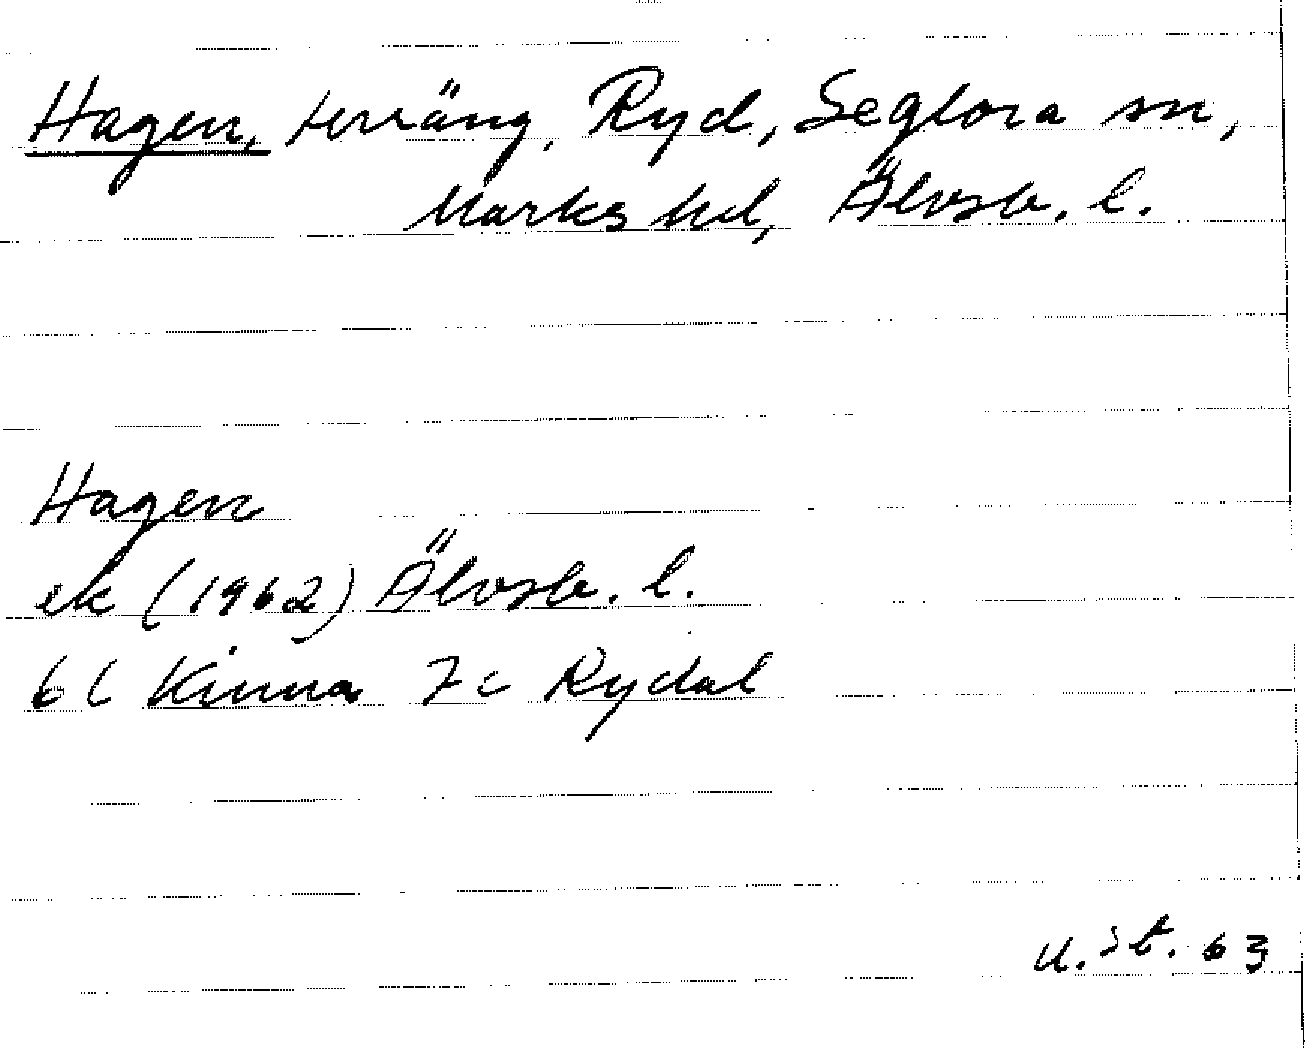 Hagen, terräng, Ryd, Seglora sn,
Marks hd, Älvsb. l.
Hagen
ek (1962) Älvsb. l.
6C Kinna 7c Rydal
U. St. 63